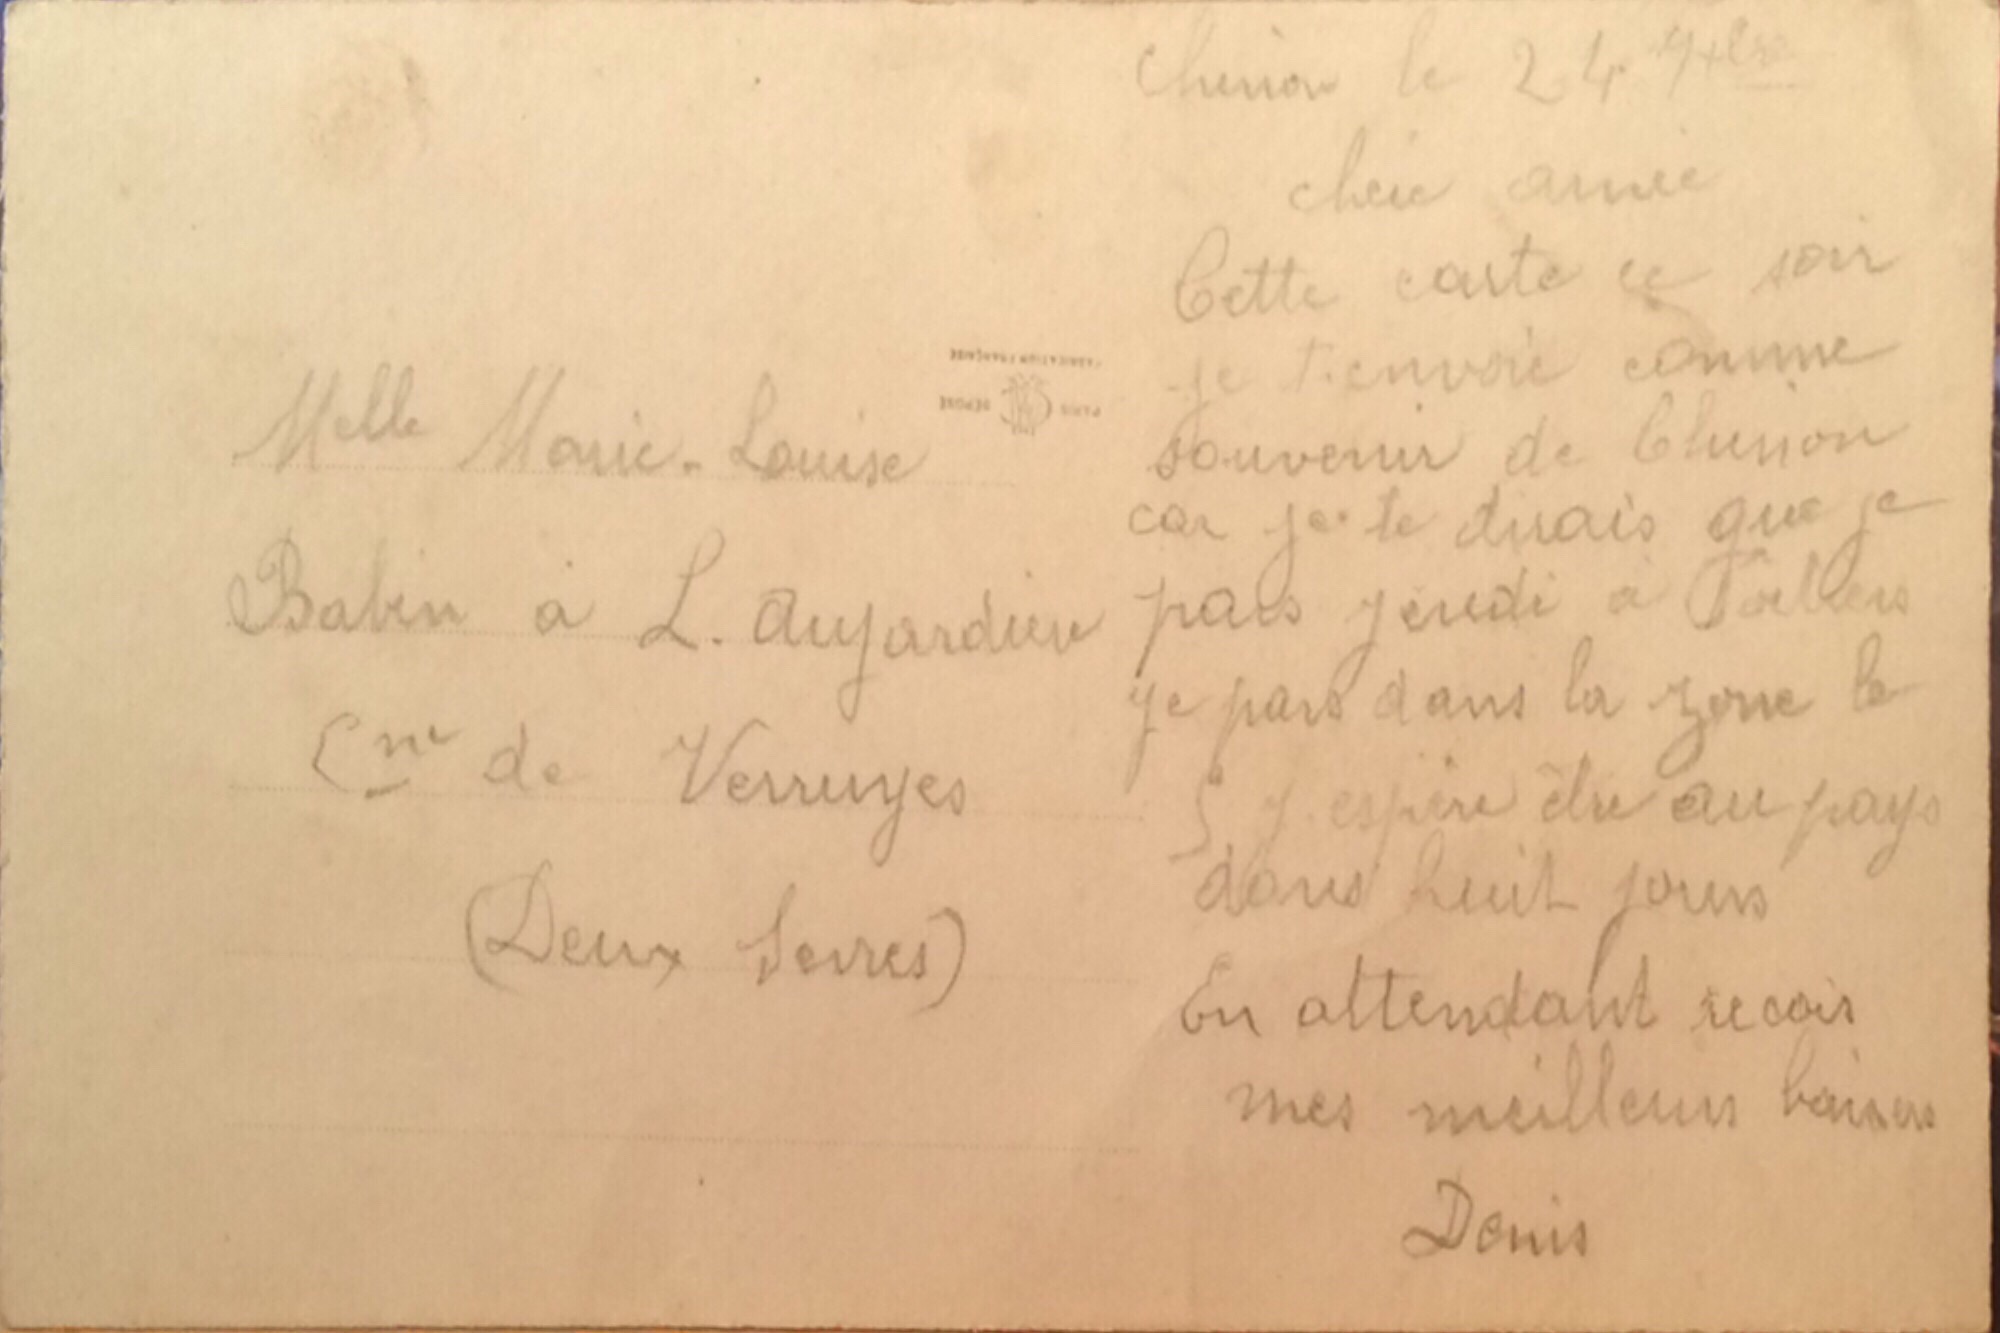 Chinon le 24 7bre
chère amie
Cette carte ce soir
je t'envoie comme
souvenir de Chinon
car je te dirais que je
pars jeudi à
je pars dans la zone le
5 j'espère être au pays
dans huit jours
En attendant recois
mes meilleurs baisers
Denis
FABRICATION FRANÇAISE
PARIS DEPOSE
Melle Marie-Louise
Babin à L. Aujardiere
Cne de Verruyes
(Deux Sevres)